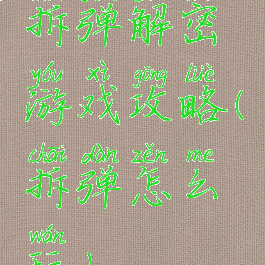 拆弹解密
yóu xì gōng lüè
游戏攻略(
chāi dàn zěn me
拆弹怎么
wán
玩)